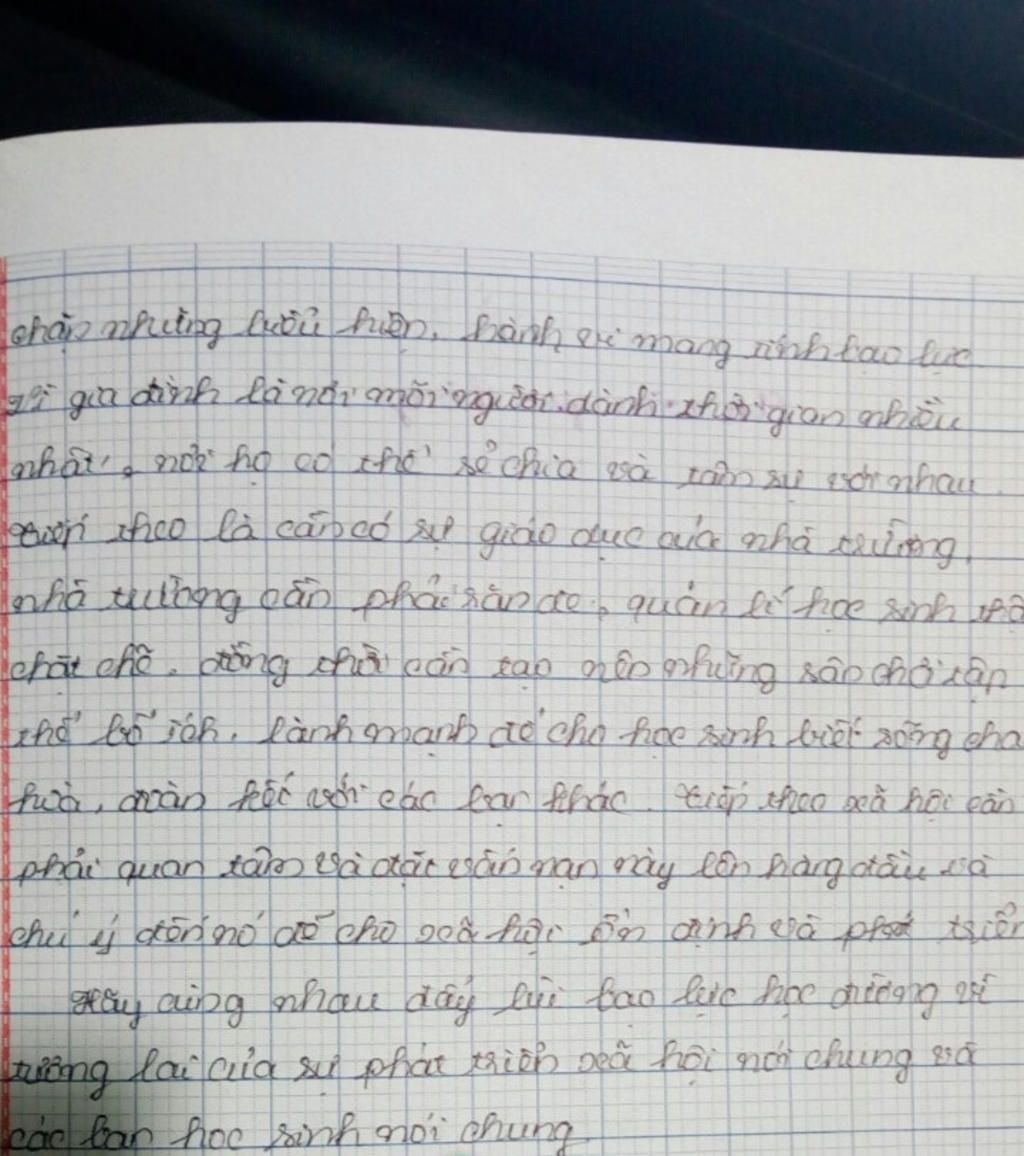 chặn những biểu hiện, hành vi mang tính bạo lực
vì gia đình là nơi mỗi người dành thời gian nhiều
nhất, nơi họ có thể sẻ chia và tâm sự với nhau
tiếp theo là cần có sự giáo dục của nhà trường,
nhà trường cần phải sân đo, quản lí học sinh
chặt chẽ. đồng thời cần tạo nên những sân chơi tập
thể bổ ích, lành mạnh để cho học sinh biết sống cha
hoà, đoàn kết với các bạn khác. tiếp theo xã hội cần
phải quan tâm và đặt vấn nạn này lên hàng đầu và
chú ý đến nó để cho xã hội ổn định và phát triển
Hãy cùng nhau đẩy lùi bạo lực học đường vì
tương lai của sự phát triển xã hội nói chung và
các bạn học sinh nói chung